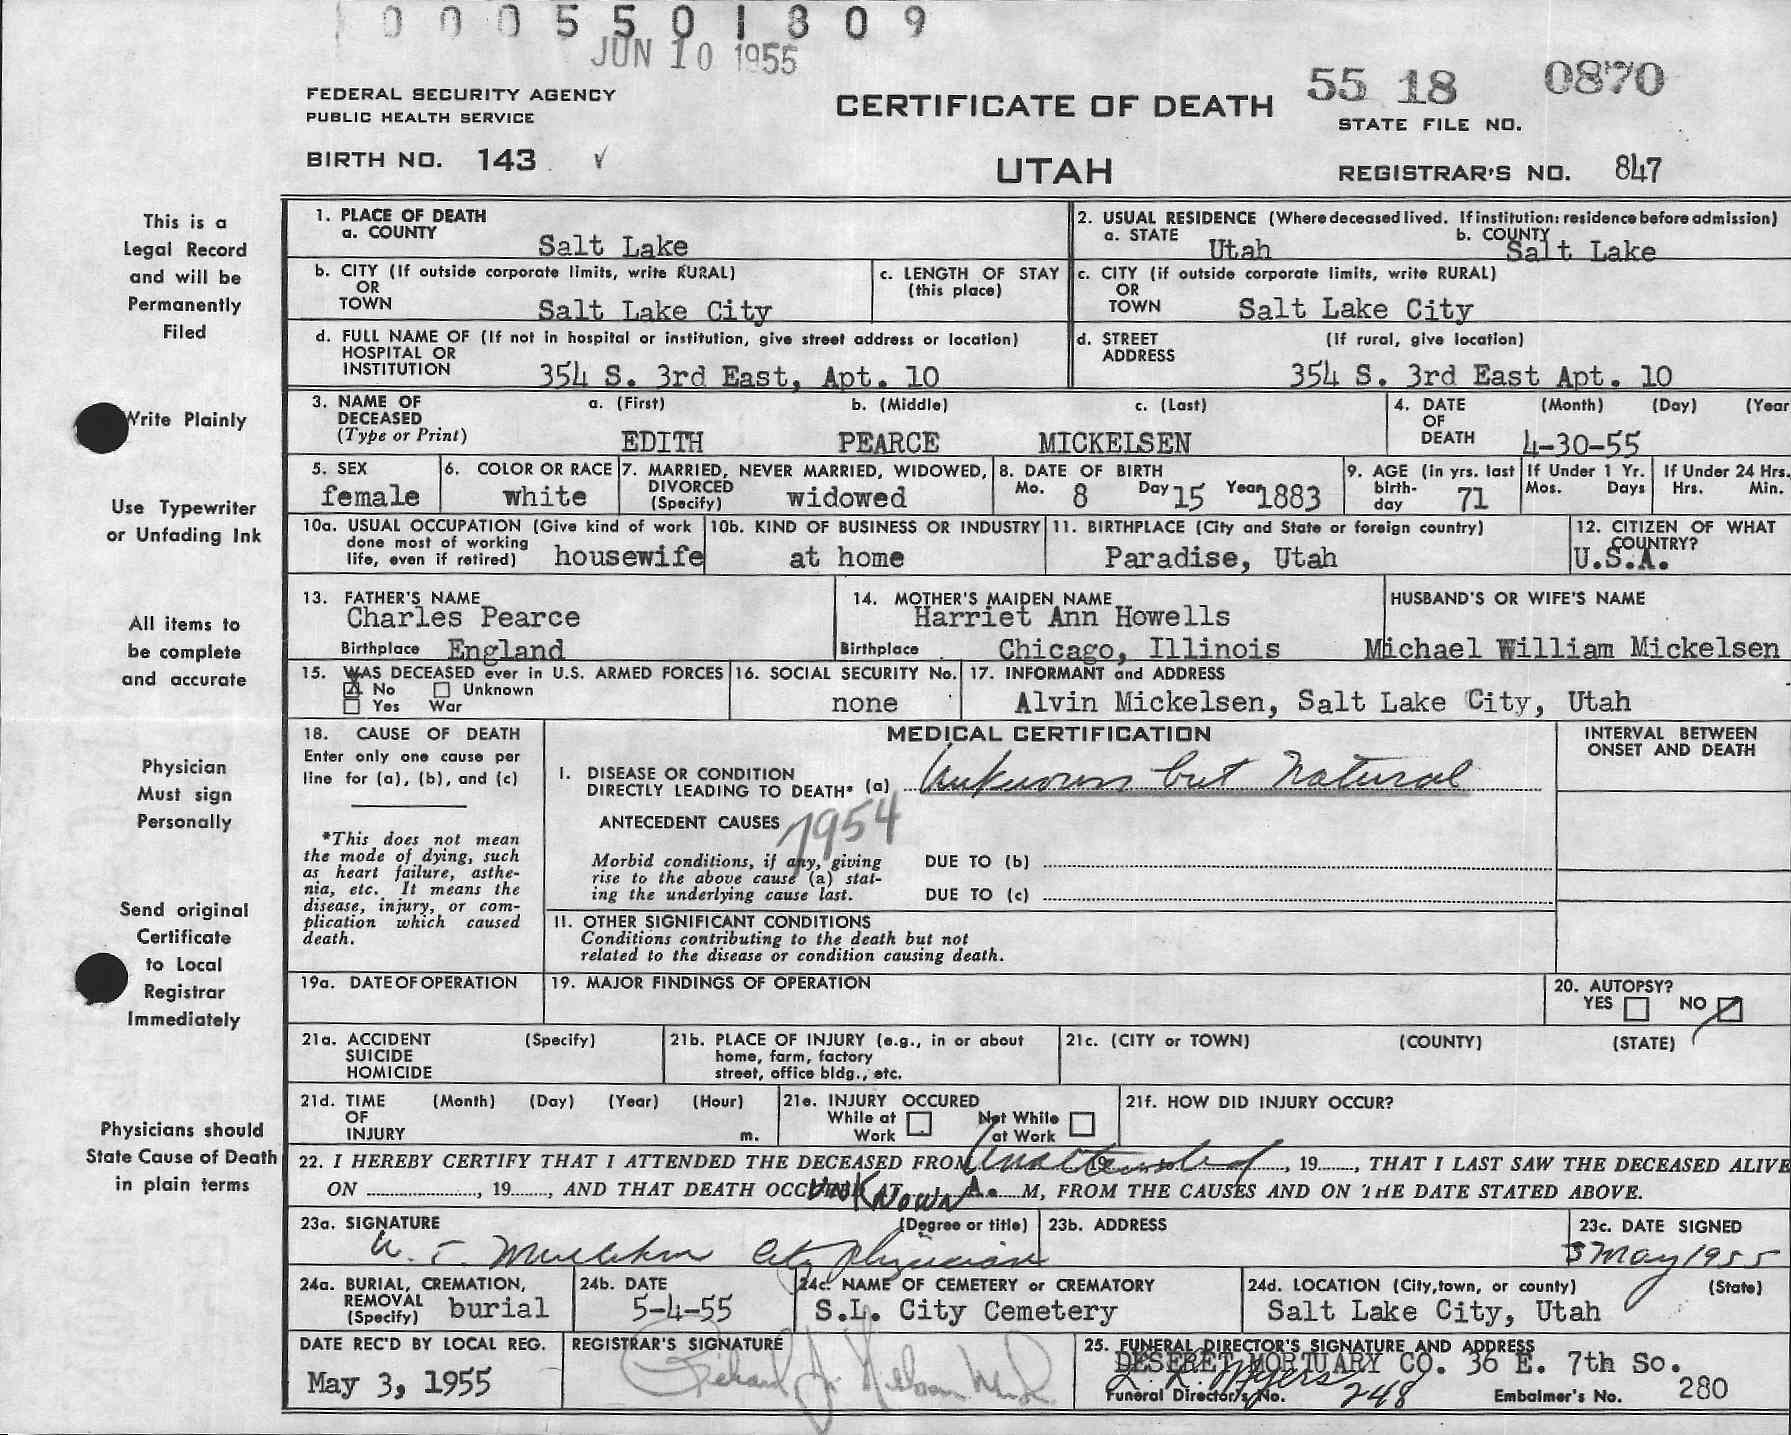 0005501809
JUN 10 1955
FEDERAL SECURITY AGENCY
PUBLIC HEALTH SERVICE
BIRTH NO. 143
CERTIFICATE OF DEATH
UTAH
55 18 0870
STATE FILE NO.
REGISTRAR'S NO. 847
This is a
Legal Record
and will be
Permanently
Filed
Write Plainly
Use Typewriter
or Unfading Ink
All items to
be complete
and accurate
Physician
Must sign
Personally
Send original
Certificate
to Local
Registrar
Immediately
Physicians should
State Cause of Death
in plain terms
1. PLACE OF DEATH
a. COUNTY Salt Lake
2. USUAL RESIDENCE (Where deceased lived. If institution: residence before admission)
a. STATE Utah b. COUNTY Salt Lake
b. CITY (If outside corporate limits, write RURAL)
OR
TOWN Salt Lake City
c. LENGTH OF STAY
(this place)
c. CITY (if outside corporate limits, write RURAL)
OR
TOWN Salt Lake City
d. FULL NAME OF (If not in hospital or institution, give street address or location)
HOSPITAL OR
INSTITUTION 354 S. 3rd East, Apt. 10
d. STREET (If rural, give location)
ADDRESS
354 S. 3rd East Apt. 10
3. NAME OF a. (First) b. (Middle) c. (Last)
DECEASED
(Type or Print) EDITH PEARCE MICKELSEN
4. DATE (Month) (Day) (Year
OF
DEATH 4-30-55
5. SEX
female
6. COLOR OR RACE
white
7. MARRIED, NEVER MARRIED, WIDOWED,
DIVORCED
(Specify) widowed
8. DATE OF BIRTH
Mo. 8 Day 15 Year 1883
9. AGE (in yrs. last
birth-
day 71
If Under 1 Yr.
Mos. Days
If Under 24 Hrs.
Hrs. Min.
10a. USUAL OCCUPATION (Give kind of work
done most of working
life, even if retired) housewife
10b. KIND OF BUSINESS OR INDUSTRY
at home
11. BIRTHPLACE (City and State or foreign country)
Paradise, Utah
12. CITIZEN OF WHAT
COUNTRY?
U.S.A.
13. FATHER'S NAME
Charles Pearce
Birthplace England
14. MOTHER'S MAIDEN NAME
Harriet Ann Howells
Birthplace Chicago, Illinois
HUSBAND'S OR WIFE'S NAME
Michael William Mickelsen
15. WAS DECEASED ever in U.S. ARMED FORCES
X No Unknown
Yes War
16. SOCIAL SECURITY No.
none
17. INFORMANT and ADDRESS
Alvin Mickelsen, Salt Lake City, Utah
18. CAUSE OF DEATH
Enter only one cause per
line for (a), (b), and (c)
*This does not mean
the mode of dying, such
as heart failure, asthe-
nia, etc. It means the
disease, injury, or com-
plication which caused
death.
MEDICAL CERTIFICATION
INTERVAL BETWEEN
ONSET AND DEATH
I. DISEASE OR CONDITION
DIRECTLY LEADING TO DEATH* (a) Unknown but Natural
ANTECEDENT CAUSES 7954
Morbid conditions, if any, giving
rise to the above cause (a) stat-
ing the underlying cause last.
DUE TO (b)
DUE TO (c)
II. OTHER SIGNIFICANT CONDITIONS
Conditions contributing to the death but not
related to the disease or condition causing death.
19a. DATE OF OPERATION
19. MAJOR FINDINGS OF OPERATION
20. AUTOPSY?
YES NO
21a. ACCIDENT (Specify)
SUICIDE
HOMICIDE
21b. PLACE OF INJURY (e.g., in or about
home, farm, factory
street, office bldg., etc.
21c. (CITY or TOWN) (COUNTY) (STATE)
21d. TIME (Month) (Day) (Year) (Hour)
OF
INJURY m.
21e. INJURY OCCURED
While at Not While
Work at Work
21f. HOW DID INJURY OCCUR?
22. I HEREBY CERTIFY THAT I ATTENDED THE DECEASED FROM Unattended, 19, THAT I LAST SAW THE DECEASED ALIVE
ON, 19, AND THAT DEATH OCCURRED AT UNKNOWN A. M, FROM THE CAUSES AND ON THE DATE STATED ABOVE.
23a. SIGNATURE (Degree or title)
City Physician
23b. ADDRESS
23c. DATE SIGNED
3 May 1955
24a. BURIAL, CREMATION,
REMOVAL
(Specify) burial
24b. DATE
5-4-55
24c. NAME OF CEMETERY or CREMATORY
S.L. City Cemetery
24d. LOCATION (City, town, or county) (State)
Salt Lake City, Utah
DATE REC'D BY LOCAL REG.
May 3, 1955
REGISTRAR'S SIGNATURE
25. FUNERAL DIRECTOR'S SIGNATURE AND ADDRESS
DESERET MORTUARY CO. 36 E. 7th So.
Funeral Director's No. 248 Embalmer's No. 280